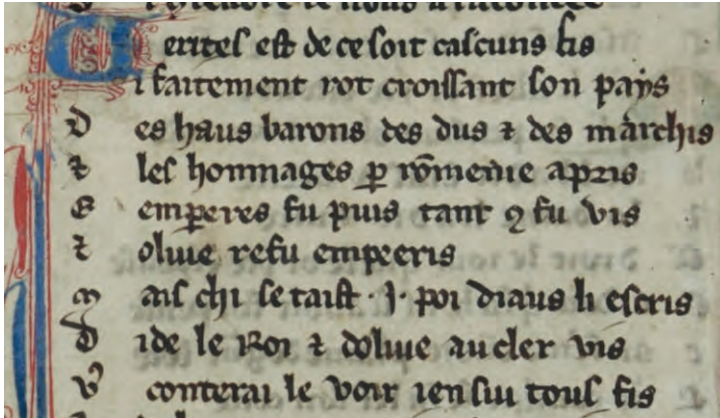 Uerites est de ce soit cascuns fis
Si faitement rot croissant son pays
D es haus barons des dus ⁊ des marchis
⁊ les hommages p̱ rōmenie apris
E emperes fu puis tant ꝯ fu vis
⁊ oliue refu empeeris
M ais chi se taist · J · poi diaus li escris
D ide le Roi ⁊ doliue au cler vis
V conterai le voir ien sui tous fis